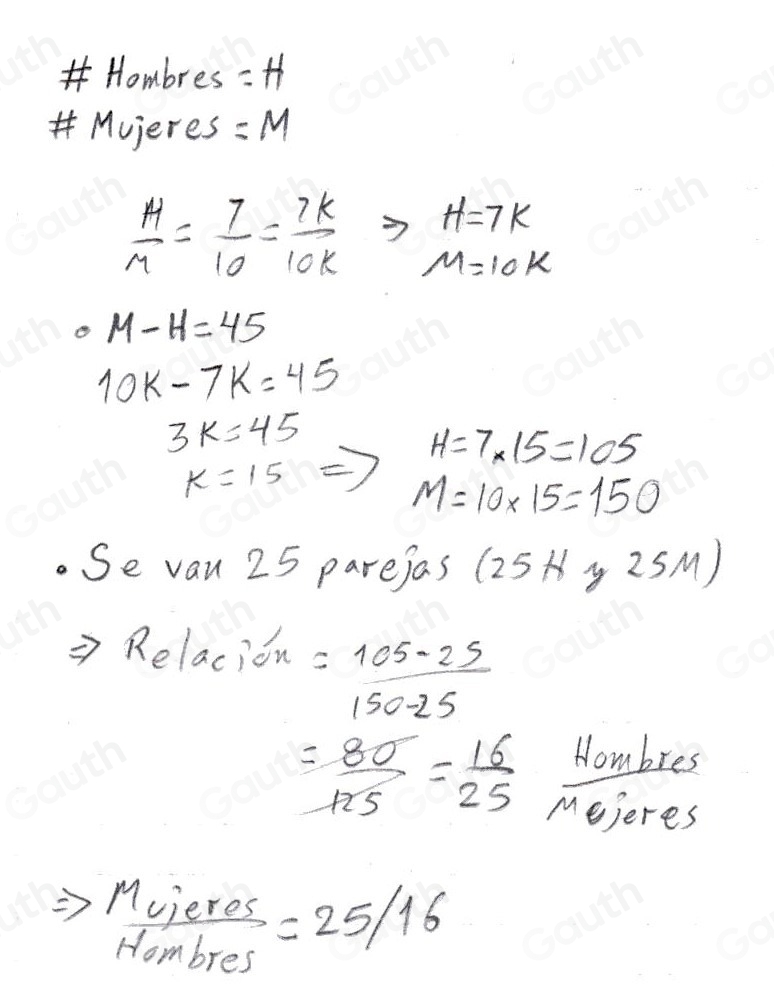 # Hombres = H
# Mujeres = M
H/M = 7/10 = 7K/10K ⇒ H=7K
M=10K
• M-H=45
10K-7K=45
3K=45
K=15 ⇒ H=7×15=105
M=10×15=150
• Se van 25 parejas (25H y 25M)
⇒ Relación = 105-25/150-25
= 80/125 = 16/25 Hombres/Mujeres
⇒ Mujeres/Hombres = 25/16
Gauth